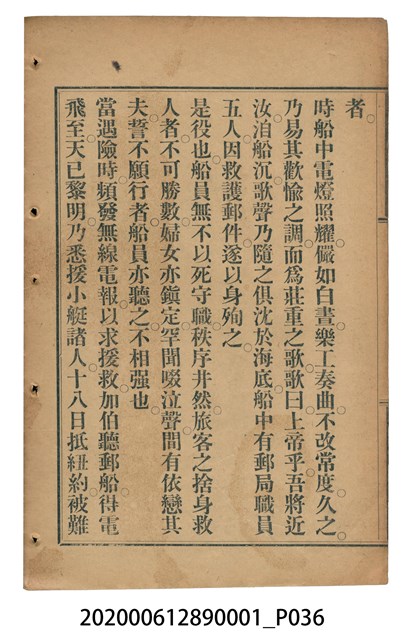 者。
時船中電燈照耀。儼如白晝。樂工奏曲。不改常度。久之。
乃易其歡愉之調。而爲莊重之歌。歌曰。上帝乎。吾將近
汝。洎船沉。歌聲乃隨之俱沈於海底。船中有郵局職員
五人。因救護郵件。遂以身殉之。
是役也。船員無不以死守職。秩序井然。旅客之捨身救
人者。不可勝數。婦女亦鎭定。罕聞啜泣聲。間有依戀其
夫。誓不願行者。船員亦聽之。不相强也。
當遇險時。頻發無線電報。以求援救。加伯聽郵船。得電
飛至。天已黎明。乃悉援小艇諸人。十八日抵紐約。被難
202000612890001_P036